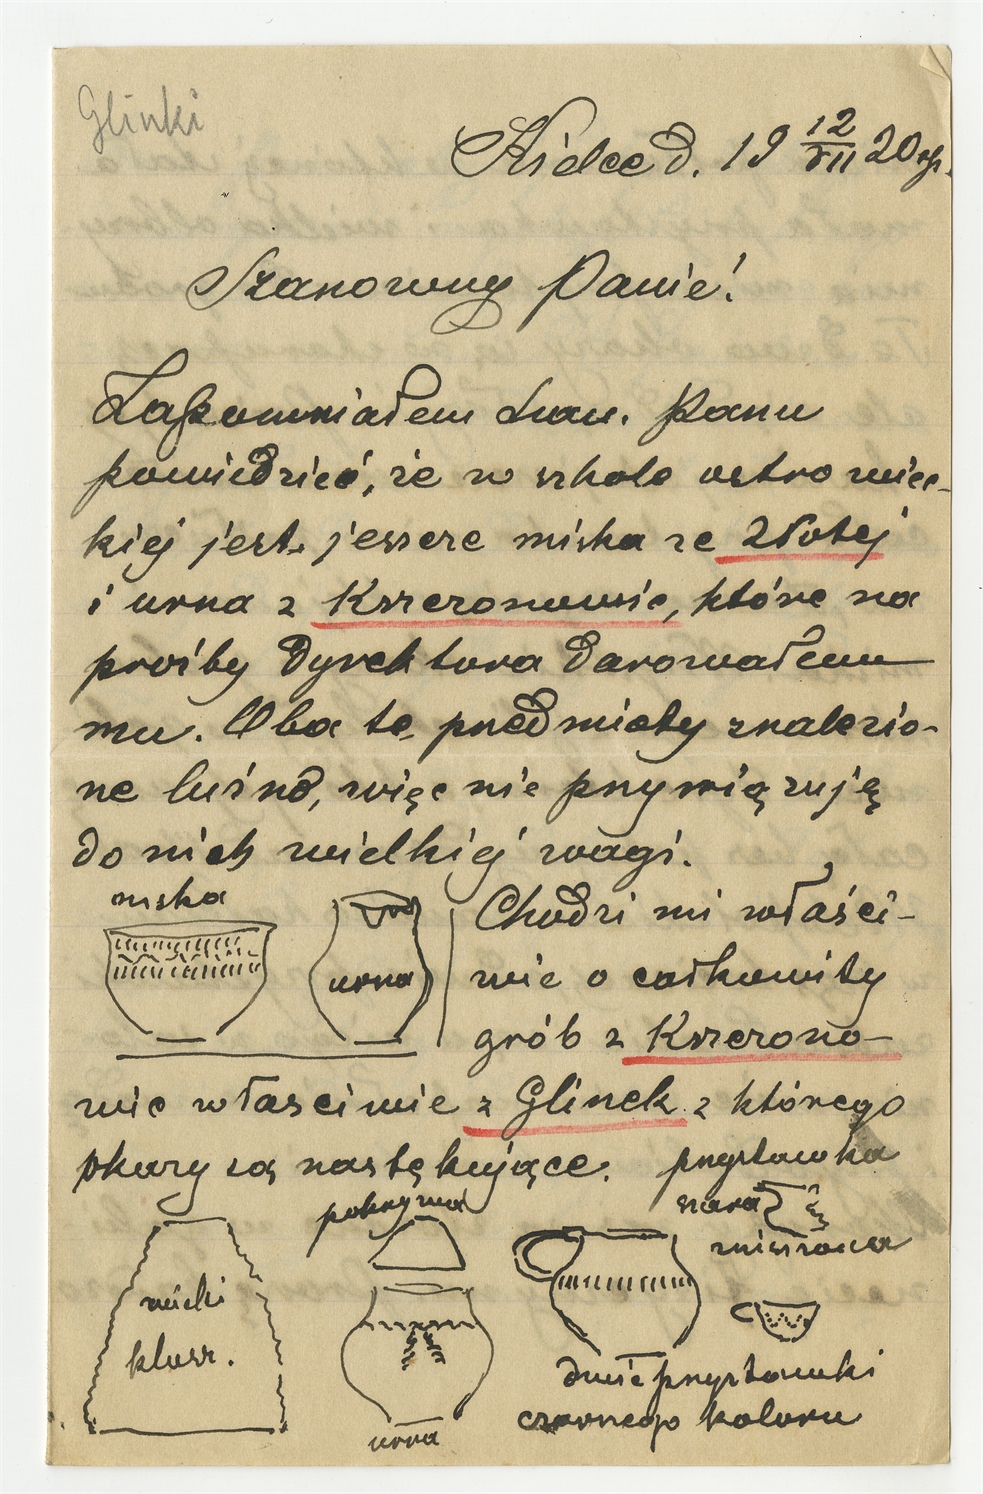 Glinki
Kielce d. 19 12/VII 20 r.
Szanowny Panie!
Zapomniałem Szan. Panu
powiedzieć, że w szkole ostrowiec-
kiej jest jeszcze miska ze Złotej
i urna z Kszczonowic, które na
prośby dyrektora darowałem
mu. Oba te przedmioty znalezio-
ne luźno, więc nie przywiązuję
do nich wielkiej wagi.
miska
urna
Chodzi mi właści-
wie o całkowity
grób z Kszczono-
wic właściwie z Glinek z którego
skarby są następujące.
przystawka
szara
zniszczona
pokrywa
wielki
klosz.
urna
dwie przystawki
czarnego koloru